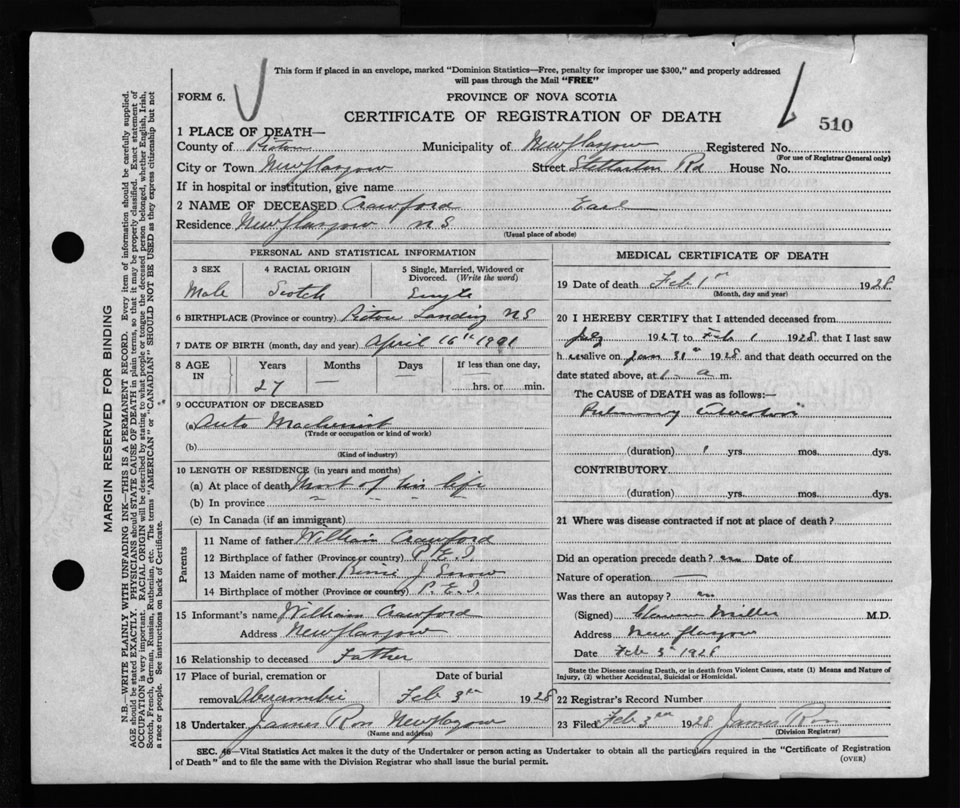 This form if placed in an envelope, marked "Dominion Statistics—Free, penalty for improper use $300," and properly addressed
will pass through the Mail "FREE"
FORM 6.
PROVINCE OF NOVA SCOTIA
CERTIFICATE OF REGISTRATION OF DEATH
510
1 PLACE OF DEATH—
County of Pictou Municipality of New Glasgow Registered No.
(For use of Registrar General only)
City or Town New Glasgow Street Stellarton Rd House No.
If in hospital or institution, give name
2 NAME OF DECEASED Crawford Earl
Residence New Glasgow N S
(Usual place of abode)
PERSONAL AND STATISTICAL INFORMATION
3 SEX 4 RACIAL ORIGIN 5 Single, Married, Widowed or Divorced. (Write the word)
Male Scotch Single
6 BIRTHPLACE (Province or country) Pictou Landing N S
7 DATE OF BIRTH (month, day and year) April 16th
8 AGE IN Years Months Days If less than one day,
27 — — hrs. or min.
9 OCCUPATION OF DECEASED
(a) Auto Machinist
(Trade or occupation or kind of work)
(b)
(Kind of industry)
10 LENGTH OF RESIDENCE (in years and months)
(a) At place of death Most of his life
(b) In province " " " "
(c) In Canada (if an immigrant)
Parents
11 Name of father William Crawford
12 Birthplace of father (Province or country) P. E. I.
13 Maiden name of mother J Snow
14 Birthplace of mother (Province or country) P. E. I.
15 Informant's name William Crawford
Address New Glasgow
16 Relationship to deceased Father
17 Place of burial, cremation or Date of burial
removal Abercrombie Feb 3rd 1928
18 Undertaker James Ross New Glasgow
(Name and address)
MEDICAL CERTIFICATE OF DEATH
19 Date of death Feb 1st 1928
(Month, day and year)
20 I HEREBY CERTIFY that I attended deceased from
July 1927 to Feb 1 1928 that I last saw
h im alive on Jan 31st 1928 and that death occurred on the
date stated above, at 1 a m.
The CAUSE of DEATH was as follows:—
Pulmonary
(duration) 1 yrs. mos. dys.
CONTRIBUTORY
(duration) yrs. mos. dys.
21 Where was disease contracted if not at place of death?
Did an operation precede death? no Date of
Nature of operation —
Was there an autopsy? no
(Signed) Clarence Miller M.D.
Address New Glasgow
Date Feb 3rd 1928
State the Disease causing Death, or in death from Violent Causes, state (1) Means and Nature of
Injury, (2) whether Accidental, Suicidal or Homicidal.
22 Registrar's Record Number
23 Filed Feb 3rd 1928 James Ross
(Division Registrar)
SEC. —Vital Statistics Act makes it the duty of the Undertaker or person acting as Undertaker to obtain all the particulars required in the "Certificate of Registration
of Death" and to file the same with the Division Registrar who shall issue the burial permit.
(OVER)
MARGIN RESERVED FOR BINDING
N.B.—WRITE PLAINLY WITH UNFADING INK—THIS IS A PERMANENT RECORD. Every item of information should be carefully supplied.
AGE should be stated EXACTLY. PHYSICIANS should STATE CAUSE OF DEATH in plain terms, so that it may be properly classified. Exact statement of
OCCUPATION is very important. RACIAL ORIGIN will be described by stating to what people or tongue the deceased person belonged, whether English, Irish,
Scotch, French, German, Russian, Ruthenian, etc. The terms "AMERICAN" or "CANADIAN" SHOULD NOT BE USED as they express citizenship but not
a race or people. See instructions on back of Certificate.